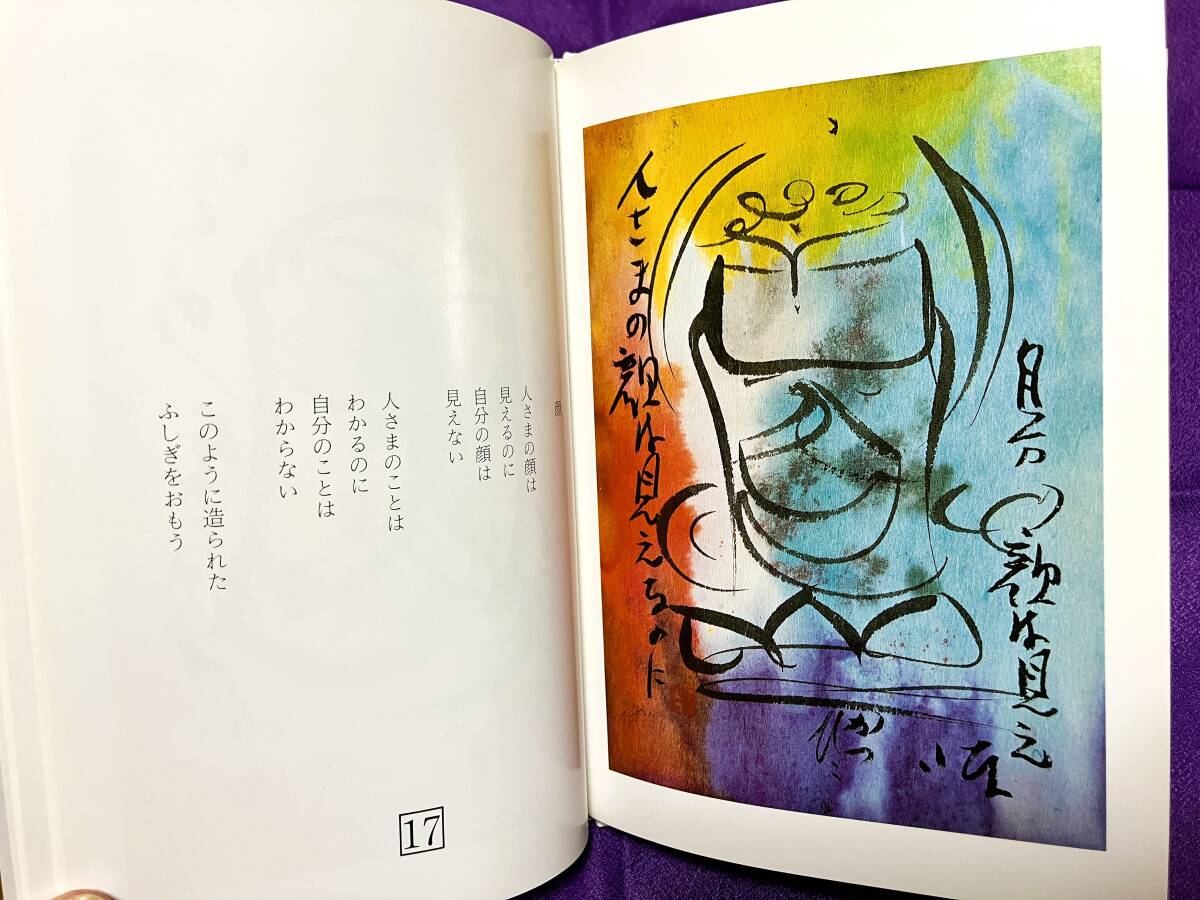 顔
人さまの顔は
見えるのに
自分の顔は
見えない
人さまのことは
わかるのに
自分のことは
わからない
このように造られた
ふしぎをおもう
17
人さまの顔は見えるのに
自分の顔は見え